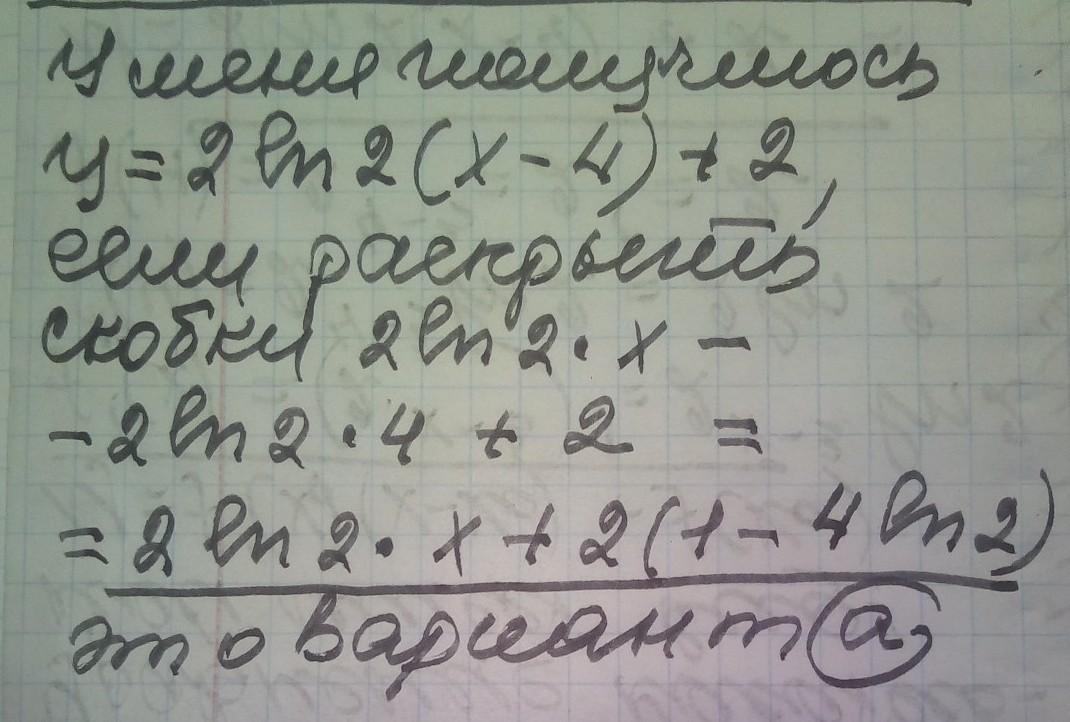 У меня получилось
y = 2 ln 2 (x - 4) + 2,
если раскрыть
скобки 2 ln 2 · x -
- 2 ln 2 · 4 + 2 =
= 2 ln 2 · x + 2 (1 - 4 ln 2)
это вариант а)